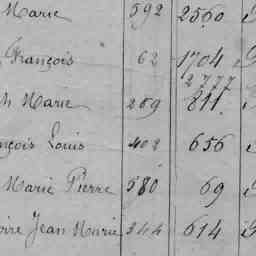 Marie 592 2560
François 62 1704
2777
Marie 259 811
nçois Louis 402 656
Marie Pierre 580 69
oire Jean Marie 344 614